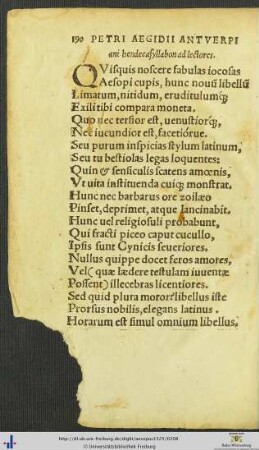 190 PETRI AEGIDII ANTVERPI
ani hendecasyllabon ad lectores.
QVisquis noscere fabulas iocosas
Aesopi cupis, hunc nouũ libellũ
Limatum, nitidum, eruditulumq;
Exili tibi compara moneta.
Quo nec tersior est, uenustiorq;,
Nec iucundior est, facetiorue.
Seu purum inspicias stylum latinum,
Seu tu bestiolas legas loquentes:
Quin & sensiculis scatens amœnis,
Vt uita instituenda cuiq; monstrat.
Hunc nec barbarus ore zoilæo
Pinset, deprimet, atque lancinabit.
Hunc uel religiosuli probabunt,
Qui fracti piceo caput cucullo,
Ipsis sunt Cynicis seueriores.
Nullus quippe docet feros amores,
Vel (quæ lædere testulam iuuentæ
Possent) illecebras licentiores.
Sed quid plura moror? libellus iste
Prorsus nobilis, elegans latinus.
Horarum est simul omnium libellus.
http://dl.ub.uni-freiburg.de/diglit/aesopus1521/0208
© Universitätsbibliothek Freiburg
Baden-Württemberg